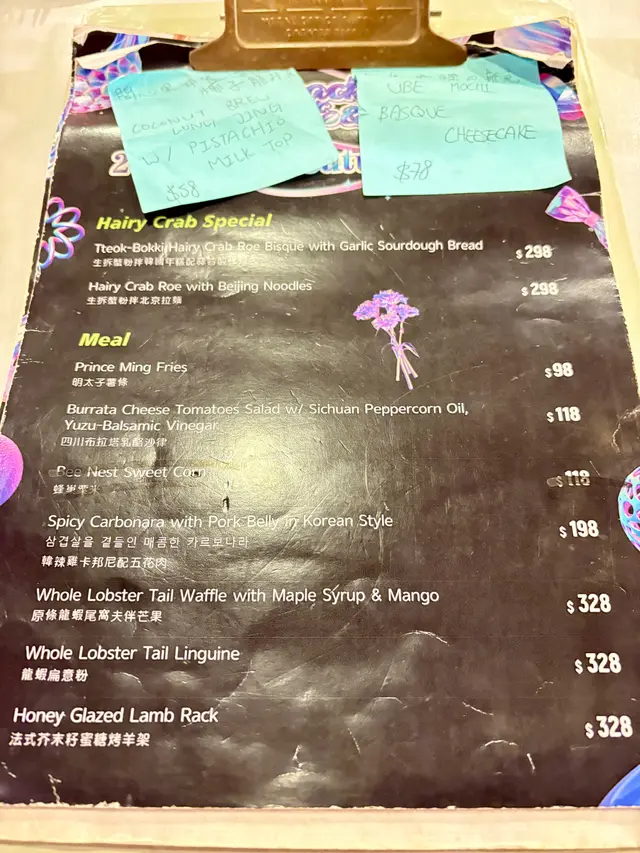 COCONUT BREW
LUNG JING
W/ PISTACHIO
MILK TOP
$58
UBE MOCHI
BASQUE
CHEESECAKE
$78
Hairy Crab Special
Tteok-Bokki Hairy Crab Roe Bisque with Garlic Sourdough Bread $298
生拆蟹粉拌韓國年糕配
Hairy Crab Roe with Beijing Noodles $298
生拆蟹粉拌北京拉麵
Meal
Prince Ming Fries $98
明太子薯條
Burrata Cheese Tomatoes Salad w/ Sichuan Peppercorn Oil, $118
Yuzu-Balsamic Vinegar
四川布拉塔乳酪沙律
Bee Nest Sweet Corn $118
蜂巢粟米
Spicy Carbonara with Pork Belly in Korean Style $198
삼겹살을 곁들인 매콤한 카르보나라
韓辣雞卡邦尼配五花肉
Whole Lobster Tail Waffle with Maple Syrup & Mango $328
原條龍蝦尾窩夫伴芒果
Whole Lobster Tail Linguine $328
龍蝦扁意粉
Honey Glazed Lamb Rack $328
法式芥末籽蜜糖烤羊架